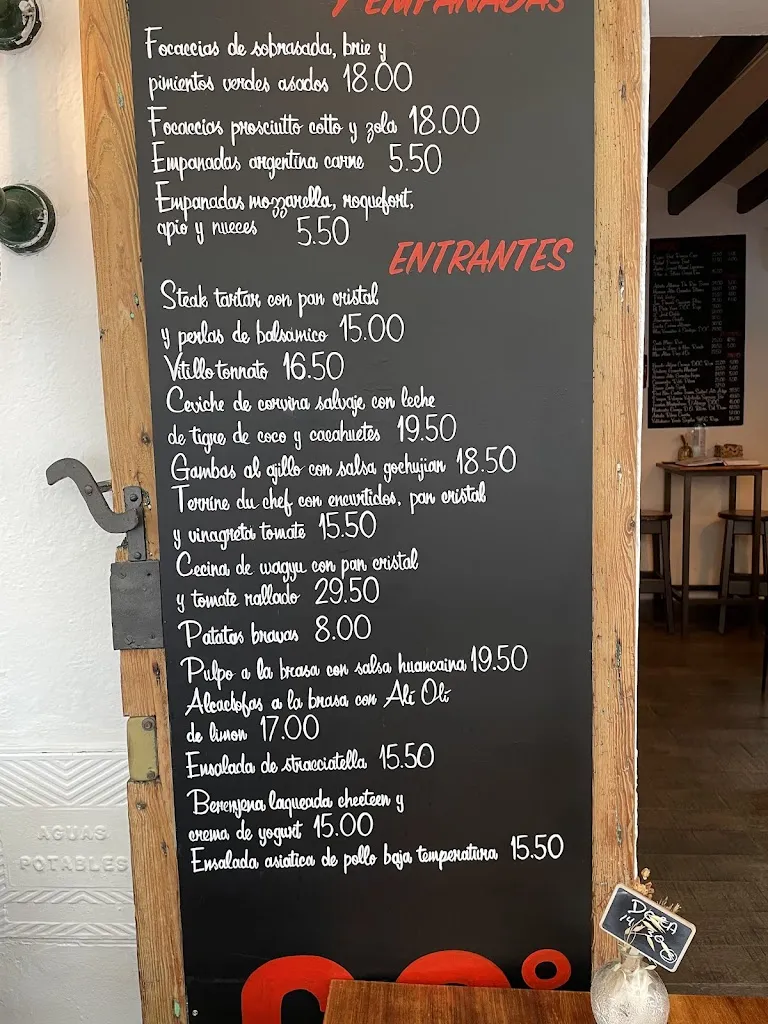 Y EMPANADAS
Focaccias de sobrasada, brie y
pimientos verdes asados 18.00
Focaccias prosciutto cotto y zola 18.00
Empanadas argentina carne 5.50
Empanadas mozzarella, roquefort,
apio y nueces 5.50
ENTRANTES
Steak tartar con pan cristal
y perlas de balsámico 15.00
Vitillo tonnato 16.50
Ceviche de corvina salvaje con leche
de tigre de coco y cacahuetes 19.50
Gambas al ajillo con salsa gochujian 18.50
Terrine du chef con encurtidos, pan cristal
y vinagreta tomate 15.50
Cecina de wagyu con pan cristal
y tomate rallado 29.50
Patatas bravas 8.00
Pulpo a la brasa con salsa huancaina 19.50
Alcachofas a la brasa con Alí Olí
de limon 17.00
Ensalada de stracciatella 15.50
Berenjena laqueada cheeteen y
crema de yogurt 15.00
Ensalada asiatica de pollo baja temperatura 15.50
AGUAS
POTABLES